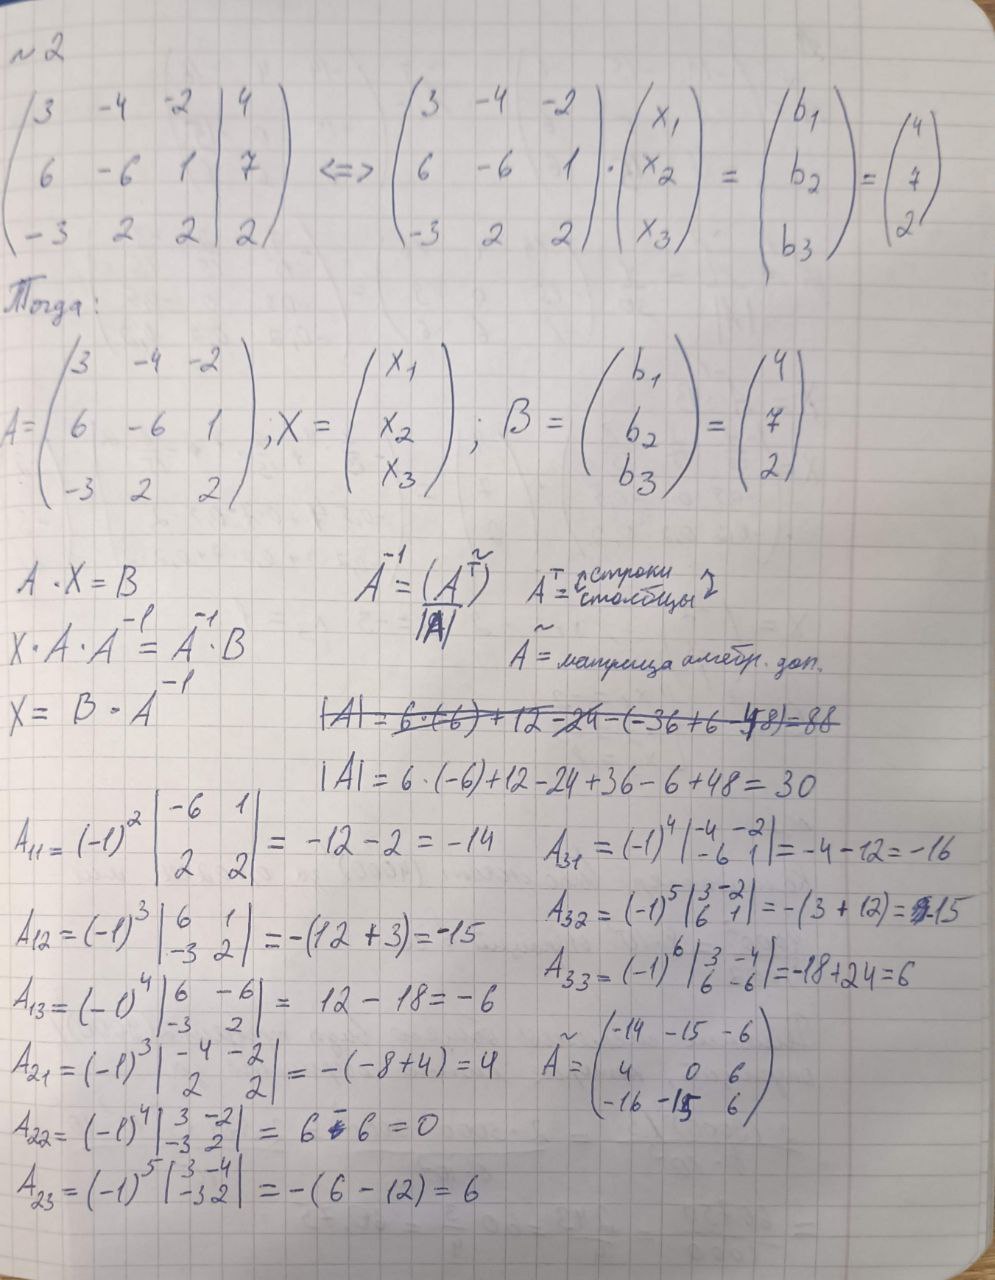 ~ 2
( 3 -4 -2 | 4 ) ( 3 -4 -2 ) ( x₁ ) ( b₁ ) ( 4 )
( 6 -6 1 | 7 ) <=> ( 6 -6 1 ) · ( x₂ ) = ( b₂ ) = ( 7 )
( -3 2 2 | 2 ) ( -3 2 2 ) ( x₃ ) ( b₃ ) ( 2 )
Тогда:
( 3 -4 -2 ) ( x₁ ) ( b₁ ) ( 4 )
A = ( 6 -6 1 ) ; X = ( x₂ ) ; B = ( b₂ ) = ( 7 )
( -3 2 2 ) ( x₃ ) ( b₃ ) ( 2 )
A · X = B
X · A · A⁻¹ = A⁻¹ · B
X = B · A⁻¹
A⁻¹ = (Ã^T) / |A|
A^T = строки
столбцы
Ã = матрица алгебр. доп.
|A| = 6·(-6) + 12 - 24 - (-36 + 6 - 48) = 88
|A| = 6 · (-6) + 12 - 24 + 36 - 6 + 48 = 30
A₁₁ = (-1)² | -6 1 ; 2 2 | = -12 - 2 = -14
A₁₂ = (-1)³ | 6 1 ; -3 2 | = -(12 + 3) = -15
A₁₃ = (-1)⁴ | 6 -6 ; -3 2 | = 12 - 18 = -6
A₂₁ = (-1)³ | -4 -2 ; 2 2 | = -(-8 + 4) = 4
A₂₂ = (-1)⁴ | 3 -2 ; -3 2 | = 6 - 6 = 0
A₂₃ = (-1)⁵ | 3 -4 ; -3 2 | = -(6 - 12) = 6
A₃₁ = (-1)⁴ | -4 -2 ; -6 1 | = -4 - 12 = -16
A₃₂ = (-1)⁵ | 3 -2 ; 6 1 | = -(3 + 12) = -15
A₃₃ = (-1)⁶ | 3 -4 ; 6 -6 | = -18 + 24 = 6
( -14 -15 -6 )
Ã = ( 4 0 6 )
( -16 -15 6 )